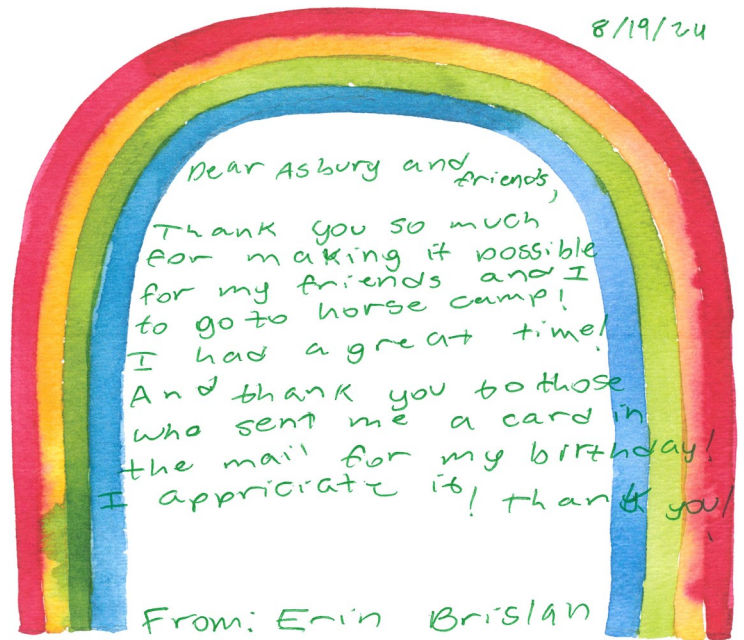 8/19/24
Dear Asbury and friends,
Thank you so much
for making it possible
for my friends and I
to go to horse camp!
I had a great time!
And thank you to those
who sent me a card in
the mail for my birthday!
I appriciate it! thank you!
From: Erin Brislan